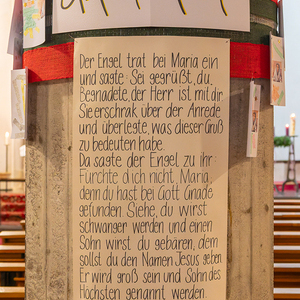 Der Engel trat bei Maria ein
und sagte: Sei gegrüßt, du
Begnadete, der Herr ist mit dir
Sie erschrak über der Anrede
und überlegte, was dieser Gruß
zu bedeuten habe.
Da sagte der Engel zu ihr
Fürchte dich nicht, Maria,
denn du hast bei Gott Gnade
gefunden. Siehe, du wirst
schwanger werden und einen
Sohn wirst du gebären, dem
sollst du den Namen Jesus geben
Er wird groß sein und Sohn des
Höchsten genannt werden.